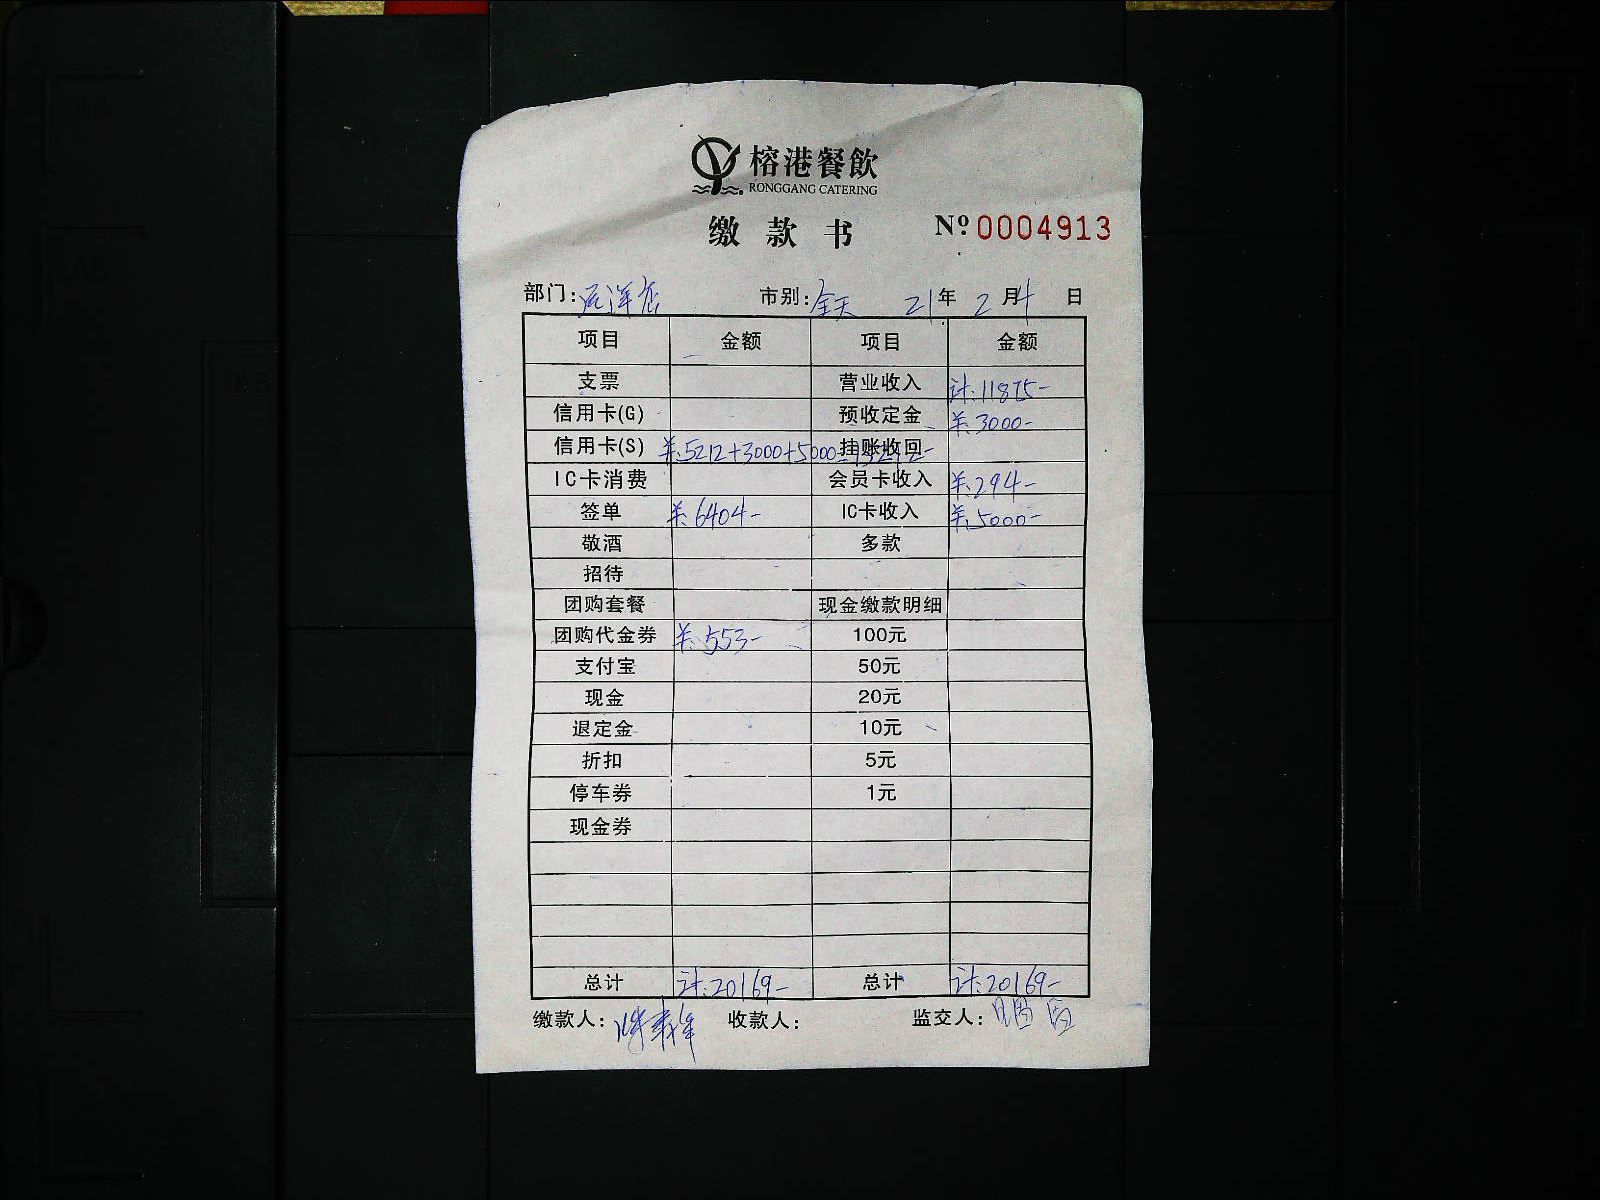 榕港餐飲
RONGGANG CATERING
缴款书 Nº 0004913
部门:远洋店 市别:全天 21年2月4日
项目 金额 项目 金额
支票 营业收入 计:11875-
信用卡(G) 预收定金 ¥:3000-
信用卡(S) ¥:5212+3000+5000=13212- 挂账收回
IC卡消费 会员卡收入 ¥:294-
签单 ¥:6404- IC卡收入 ¥:5000-
敬酒 多款
招待
团购套餐 现金缴款明细
团购代金券 ¥:553- 100元
支付宝 50元
现金 20元
退定金 10元
折扣 5元
停车券 1元
现金券
总计 计:20169- 总计 计:20169-
缴款人: 收款人: 监交人: